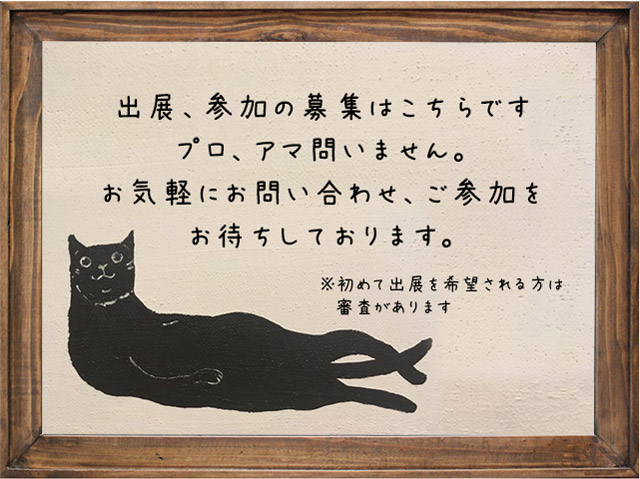 出展、参加の募集はこちらです
プロ、アマ問いません。
お気軽にお問い合わせ、ご参加を
お待ちしております。
※初めて出展を希望される方は
審査があります